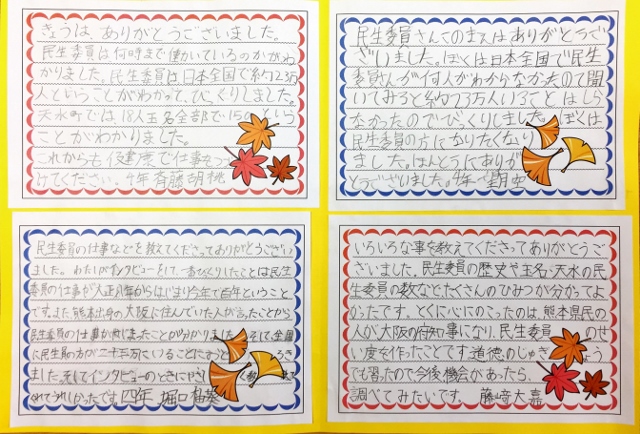 きょうは、ありがとうございました。
民生委員は何時まで働いているのかがわ
かりました。民生委員は日本全国で約23万
人ということがわかって、びっくりしました。
天水町では、18人玉名全部で150人という
ことがわかりました。
これからも役割度で仕事をつづ
けてください。4年 斉藤胡桃
民生委員さんこのまえはありがとうご
ざいました。ぼくは日本全国で民生
委員さんが何人かわからなかったので聞
いてみると約23万人いることはしら
なかったのでびっくりしました。ぼくは
民生委員の方になりたくなり
ました。ほんとうにありが
とうございました。4年
民生委員の仕事などを教えてくださってありがとうござい
ました。わたしがインタビューをして一番びっくりしたことは民生
委員の仕事が大正九年からはじまり今年で百年ということ
です。また熊本出身の大阪に住んでいた人が言ったことから
民生委員の仕事が始まったことが分かりました。そして、全国
に民生委員の方が二十三万人いることにきづき
ましたそしてインタビューのときにやさしく教えて
くれてうれしかったです。四年 堀口
いろいろな事を教えてくださってありがとうご
ざいました。民生委員の歴史や玉名・天水の民
生委員の数など、たくさんのひみつが分かってよ
かったです。とくに心にのこったのは、熊本県民の
人が大阪の府知事になり、民生委員のせ
い度を作ったことです道徳のじゅぎょう
でも習ったので今後機会があったら、
調べてみたいです。藤﨑大嘉